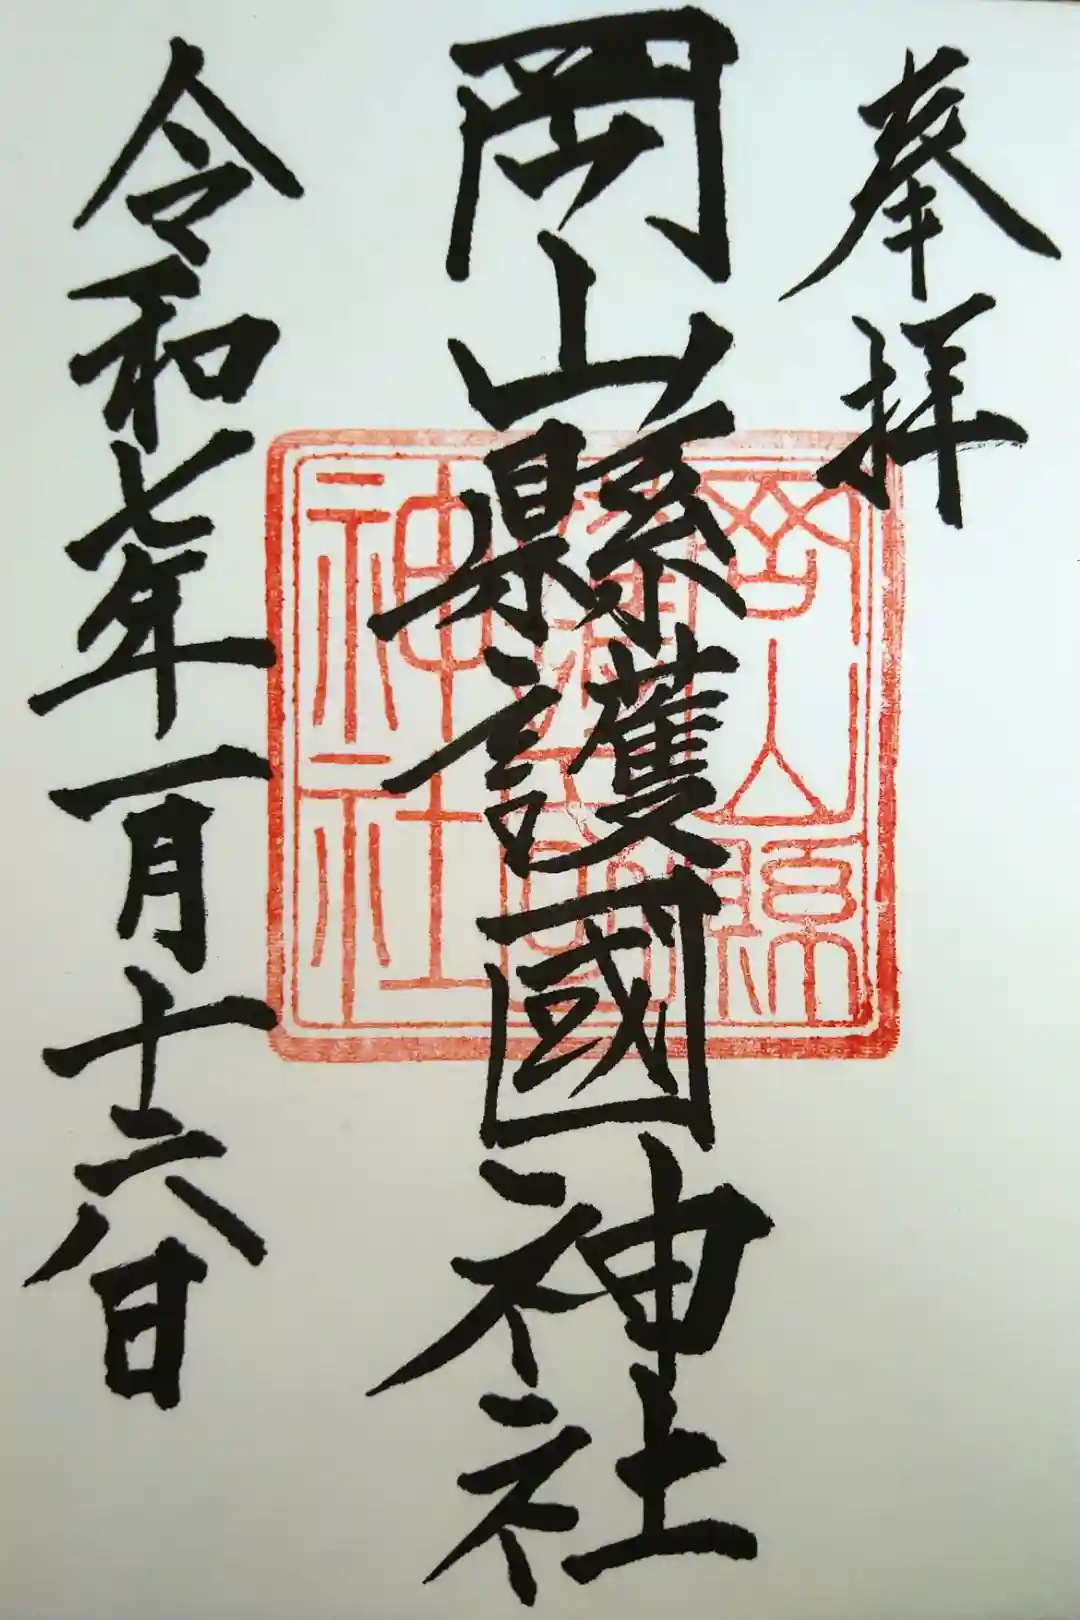 奉拝
岡山縣護國神社
令和七年一月十六日
岡山縣
護國
神社